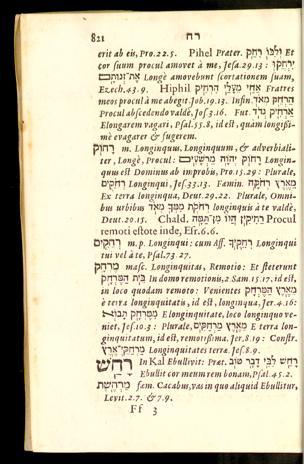 821 רח
erit ab eis, Pro.22.5. Pihel Præter. וְלִבּוֹ רִחַק Et
cor suum procul amovet à me, Jesa.29.13: יְרַחֲקוּ
אֶת־זְנוּתָם Longè amovebunt scortationem suam,
Ezech.43.9. Hiphil אַחַי מֵעָלַי הִרְחִיק Fratres
meos procul à me abegit. Job.19.13. Infin. הַרְחֵק מְאֹד
Procul abscedendo valdè, Jos.3.16. Fut. אַרְחִיק נְדֹד
Elongarem vagari, Psal.55.8, id est, quàm longissi-
mè evagarer & fugerem.
רָחוֹק m. Longinquum, Longinquum, & adverbiali-
ter, Longè, Procul: רָחוֹק יְהוָה מֵרְשָׁעִים Longin-
quus est Dominus ab improbis, Pro.15.29: Plurale,
רְחוֹקִים Longinqui, Jes.33.13. Fœmin. מֵאֶרֶץ רְחוֹקָה
Ex terra longinqua, Deut.29.22. Plurale, Omni-
bus urbibus רְחֹקֹת מִמְּךָ מְאֹד longinquis à te valdè,
Deut.20.15. Chald. רַחִיקִין הֲווֹ מִן־תַּמָּה Procul
remoti estote inde, Esr.6.6.
רְחֵקִים m.p. Longinqui: cum Aff. רְחֵקֶיךָ Longinqui
tui vel à te, Psal.73.27.
מֶרְחָק masc. Longinquitas, Remotio: Et steterunt
בֵּית הַמֶּרְחָק In domo remotionis, 2.Sam.15.17, id est,
in loco quodam remoto: Venientes מֵאֶרֶץ הַמֶּרְחָק
è terra longinquitatis, id est, longinqua, Jer.4.16:
מִמֶּרְחָק תָּבוֹא E longinquitate, loco longinquo ve-
niet, Jes.10.3: Plurale, מֵאֶרֶץ מַרְחַקִּים E terra lon-
ginquitatum, id est, remotissima. Jer.8.19: Constr.
מֶרְחַקֵּי־אָרֶץ Longinquitates terræ. Jes.8.9.
רָחַשׁ In Kal Ebullivit: Præt. רָחַשׁ לִבִּי דָּבָר טוֹב
Ebullit cor meum rem bonam, Psal.45.2.
מַרְחֶשֶׁת fœm. Cacabus, vas in quo aliquid Ebullitur,
Levit.2.7. & 7.9.
Ff 3